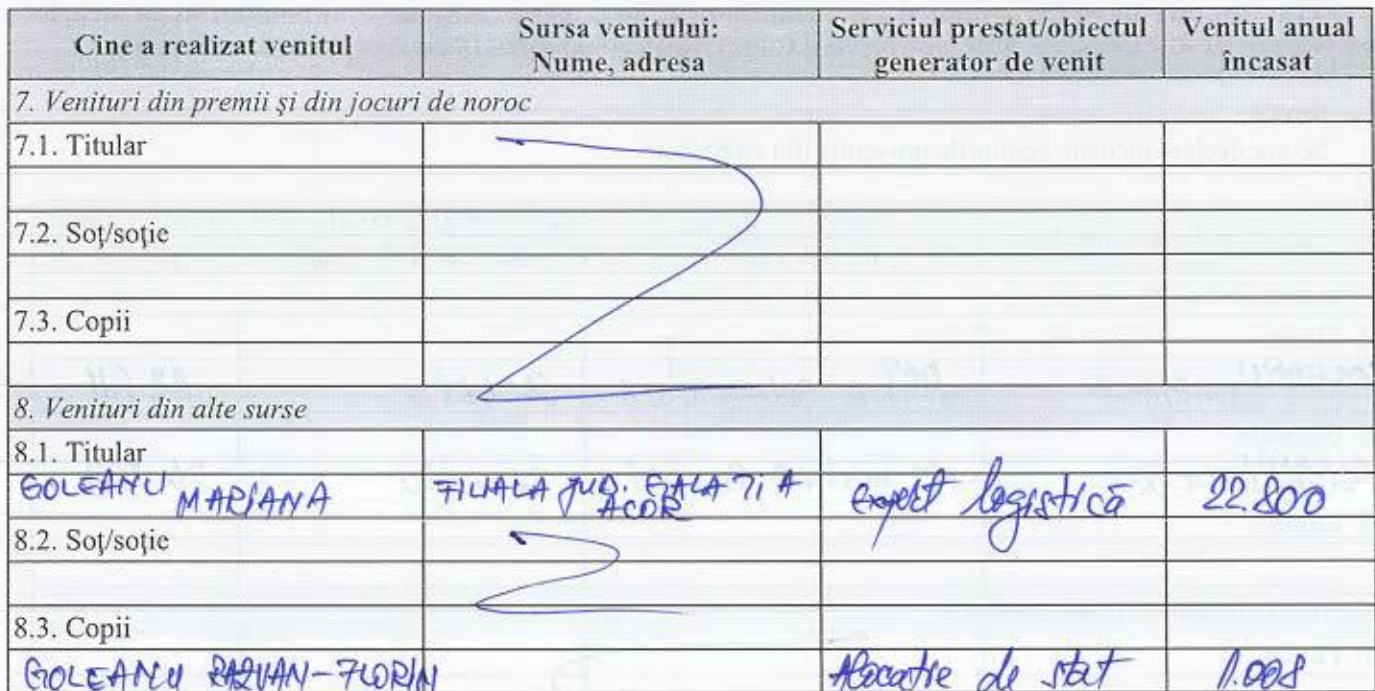 Cine a realizat venitul | Sursa venitului: Nume, adresa | Serviciul prestat/obiectul generator de venit | Venitul anual încasat
7. Venituri din premii şi din jocuri de noroc
7.1. Titular
7.2. Soţ/soţie
7.3. Copii
8. Venituri din alte surse
8.1. Titular
GOLEANU MARIANA | FILIALA JUD. GALATI A ACOR | expert logistică | 22.800
8.2. Soţ/soţie
8.3. Copii
GOLEANU RAZVAN-FLORIN | Alocatie de stat | 1.008